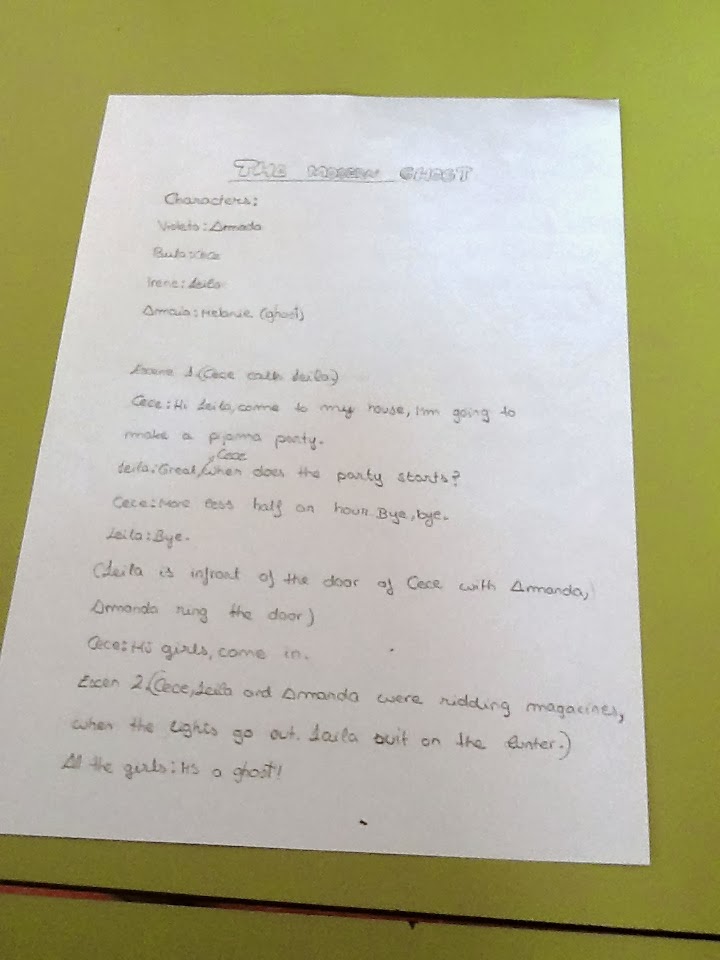 THE MODERN GHOST
Characters:
Violeta: Armada
Paula: Cece
Irene: Leila
Amaia: Melanie (ghost)
Escene 1.(Cece calls Leila.)
Cece: Hi Leila, come to my house, I'm going to
make a pijama party.
Leila: Great, Cece, when does the party starts?
Cece: More less half an hour. Bye, bye.
Leila: Bye.
(Leila is infront of the door of Cece with Amanda,
Armanda rung the door)
Cece: Hi girls, come in.
Escen 2.(Cece, Leila and Amanda were ridding magacines,
when the lights go out. Laila suit on the lunter.)
All the girls: It's a ghost!